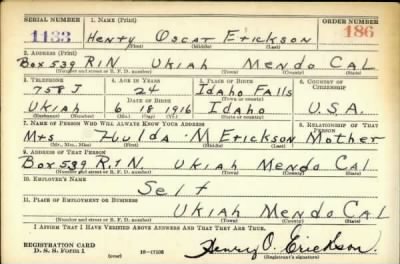 SERIAL NUMBER 1. NAME (Print) ORDER NUMBER
1133 Henry Oscar Erickson 186
(First) (Middle) (Last)
2. ADDRESS (Print)
Box 539 R1N Ukiah Mendo Cal
(Number and street or R. F. D. number) (Town) (County) (State)
3. TELEPHONE 4. AGE IN YEARS 5. PLACE OF BIRTH 6. COUNTRY OF CITIZENSHIP
758J 24 Idaho Falls
DATE OF BIRTH (Town or county)
Ukiah 6 18 1916 Idaho U.S.A.
(Exchange) (Number) (Mo.) (Day) (Yr.) (State or country)
7. NAME OF PERSON WHO WILL ALWAYS KNOW YOUR ADDRESS 8. RELATIONSHIP OF THAT PERSON
Mrs Hulda M Erickson Mother
(Mr., Mrs., Miss) (First) (Middle) (Last)
9. ADDRESS OF THAT PERSON
Box 539 R1N. Ukiah Mendo Cal
(Number and street or R. F. D. number) (Town) (County) (State)
10. EMPLOYER'S NAME
Self
11. PLACE OF EMPLOYMENT OR BUSINESS
Ukiah Mendo Cal
(Number and street or R. F. D. number) (Town) (County) (State)
I AFFIRM THAT I HAVE VERIFIED ABOVE ANSWERS AND THAT THEY ARE TRUE.
REGISTRATION CARD
D. S. S. Form 1 (over) Henry O. Erickson
(Registrant's signature)